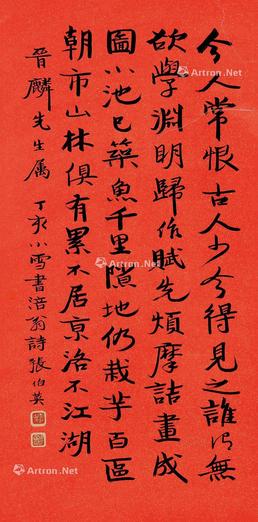 今人常恨古人少今得見之誰謂無
欲學淵明歸作賦先煩摩詰畫成
圖小池已築魚千里隙地仍栽芋百區
朝市山林俱有累不居京洛不江湖
晉麟先生属 丁亥小雪書涪翁詩張伯英
Artron.Net
Artron.Net
Artron.Net
Artron.Net